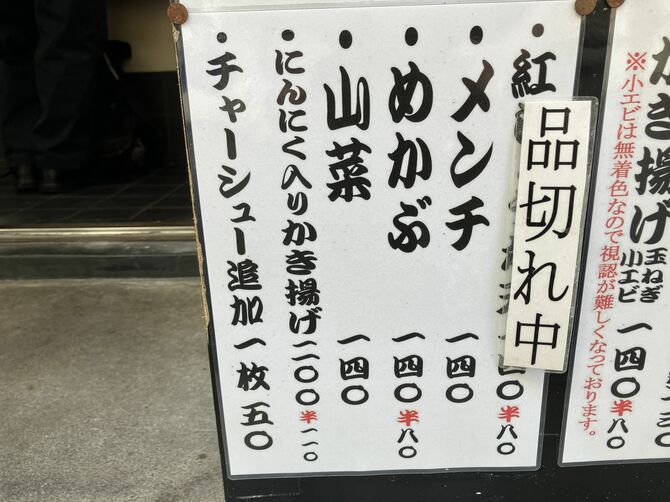 かき揚げ 玉ねぎ 小エビ 一四〇 半八〇
※小エビは無着色なので視認が難しくなっております。
品切れ中
・紅
四〇 半八〇
・メンチ 一四〇
・めかぶ 一四〇 半八〇
・山菜 一四〇
・にんにく入りかき揚げ 二〇〇 半一一〇
・チャーシュー追加一枚 五〇